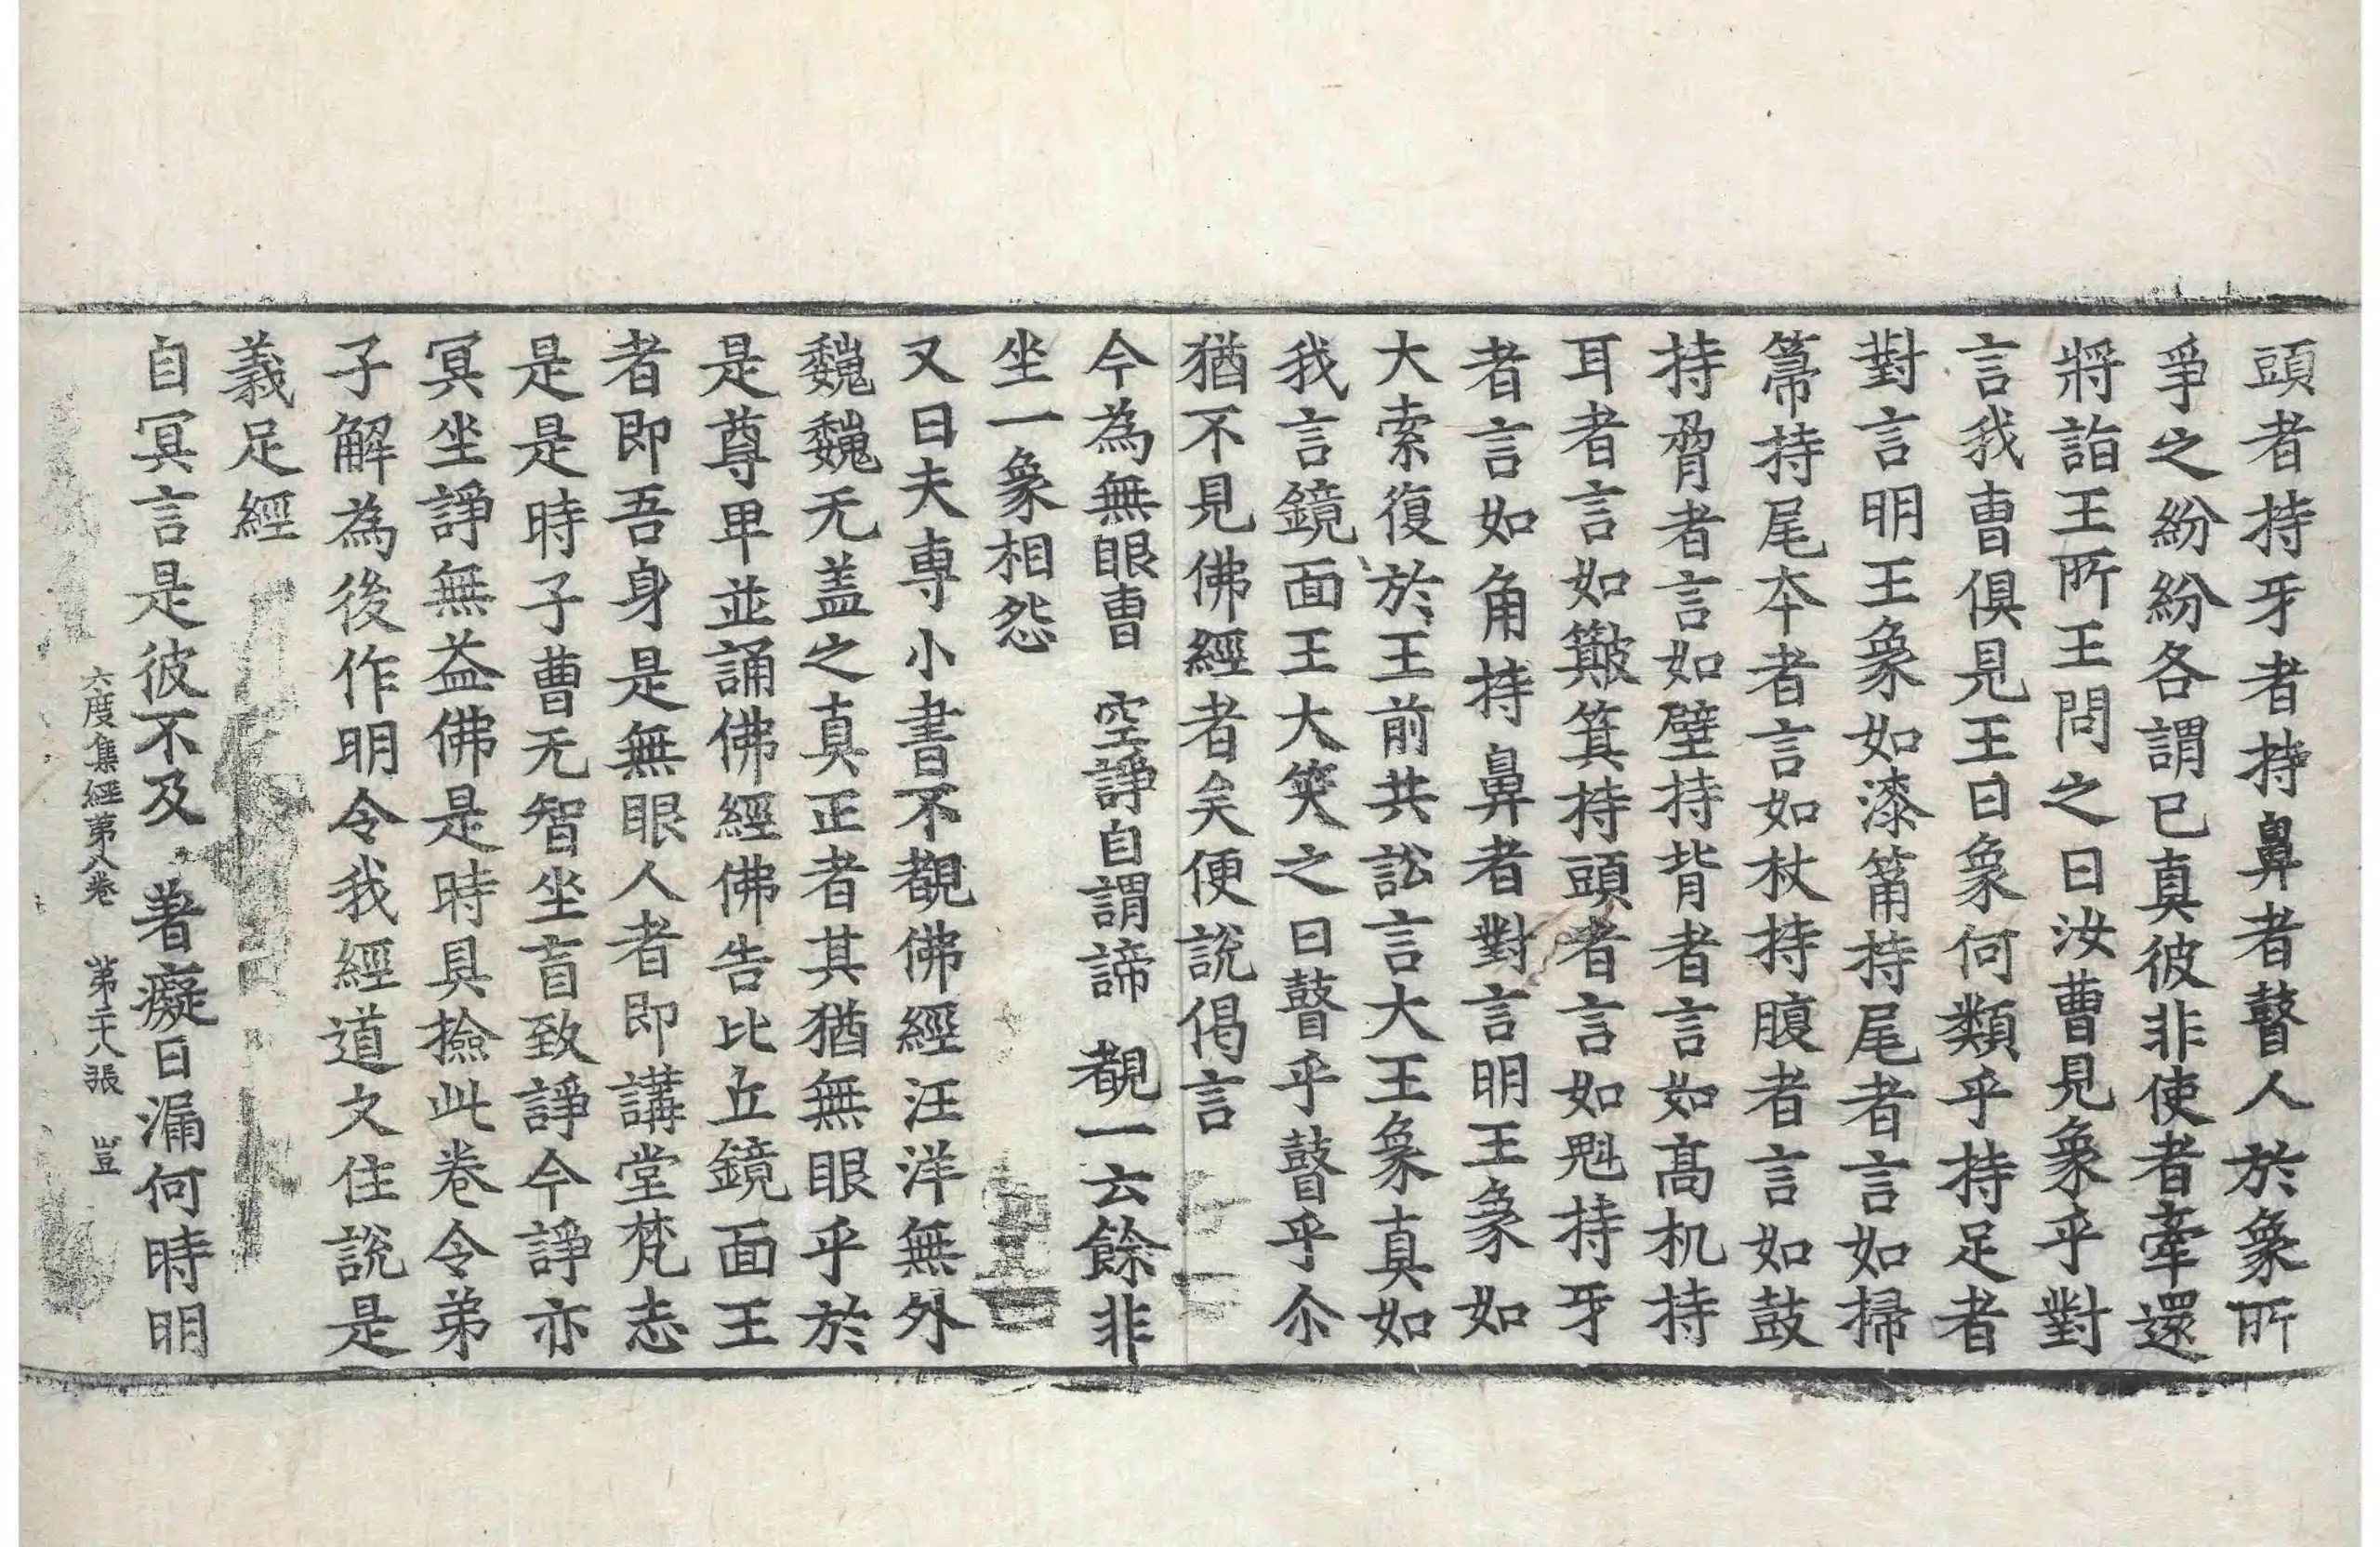 頭者持牙者持鼻者瞽人於象所
爭之紛紛各謂已真彼非使者牽還
將詣王所王問之曰汝曹見象乎對
言我曹俱見王曰象何類乎持足者
對言明王象如漆筩持尾者言如掃
箒持尾夲者言如杖持腹者言如鼓
持脅者言如壁持背者言如高机持
耳者言如簸箕持頭者言如魁持牙
者言如角持鼻者對言明王象如
大索復於王前共訟言大王象真如
我言鏡面王大笑之曰瞽乎瞽乎尒
猶不見佛經者矣便說偈言
今為無眼曹　空諍自謂諦　覩一云餘非
坐一象相怨
又曰夫專小書不覩佛經汪洋無外
巍巍无盖之真正者其猶無眼乎於
是尊卑並誦佛經佛告比丘鏡面王
者即吾身是無眼人者即講堂梵志
是是時子曹无智坐盲致諍今諍亦
冥坐諍無益佛是時具撿此卷令弟
子解為後作明令我經道文住說是
義足經
自冥言是彼不及　著癡日漏何時明
六度集經第八卷　第二十八張　豈